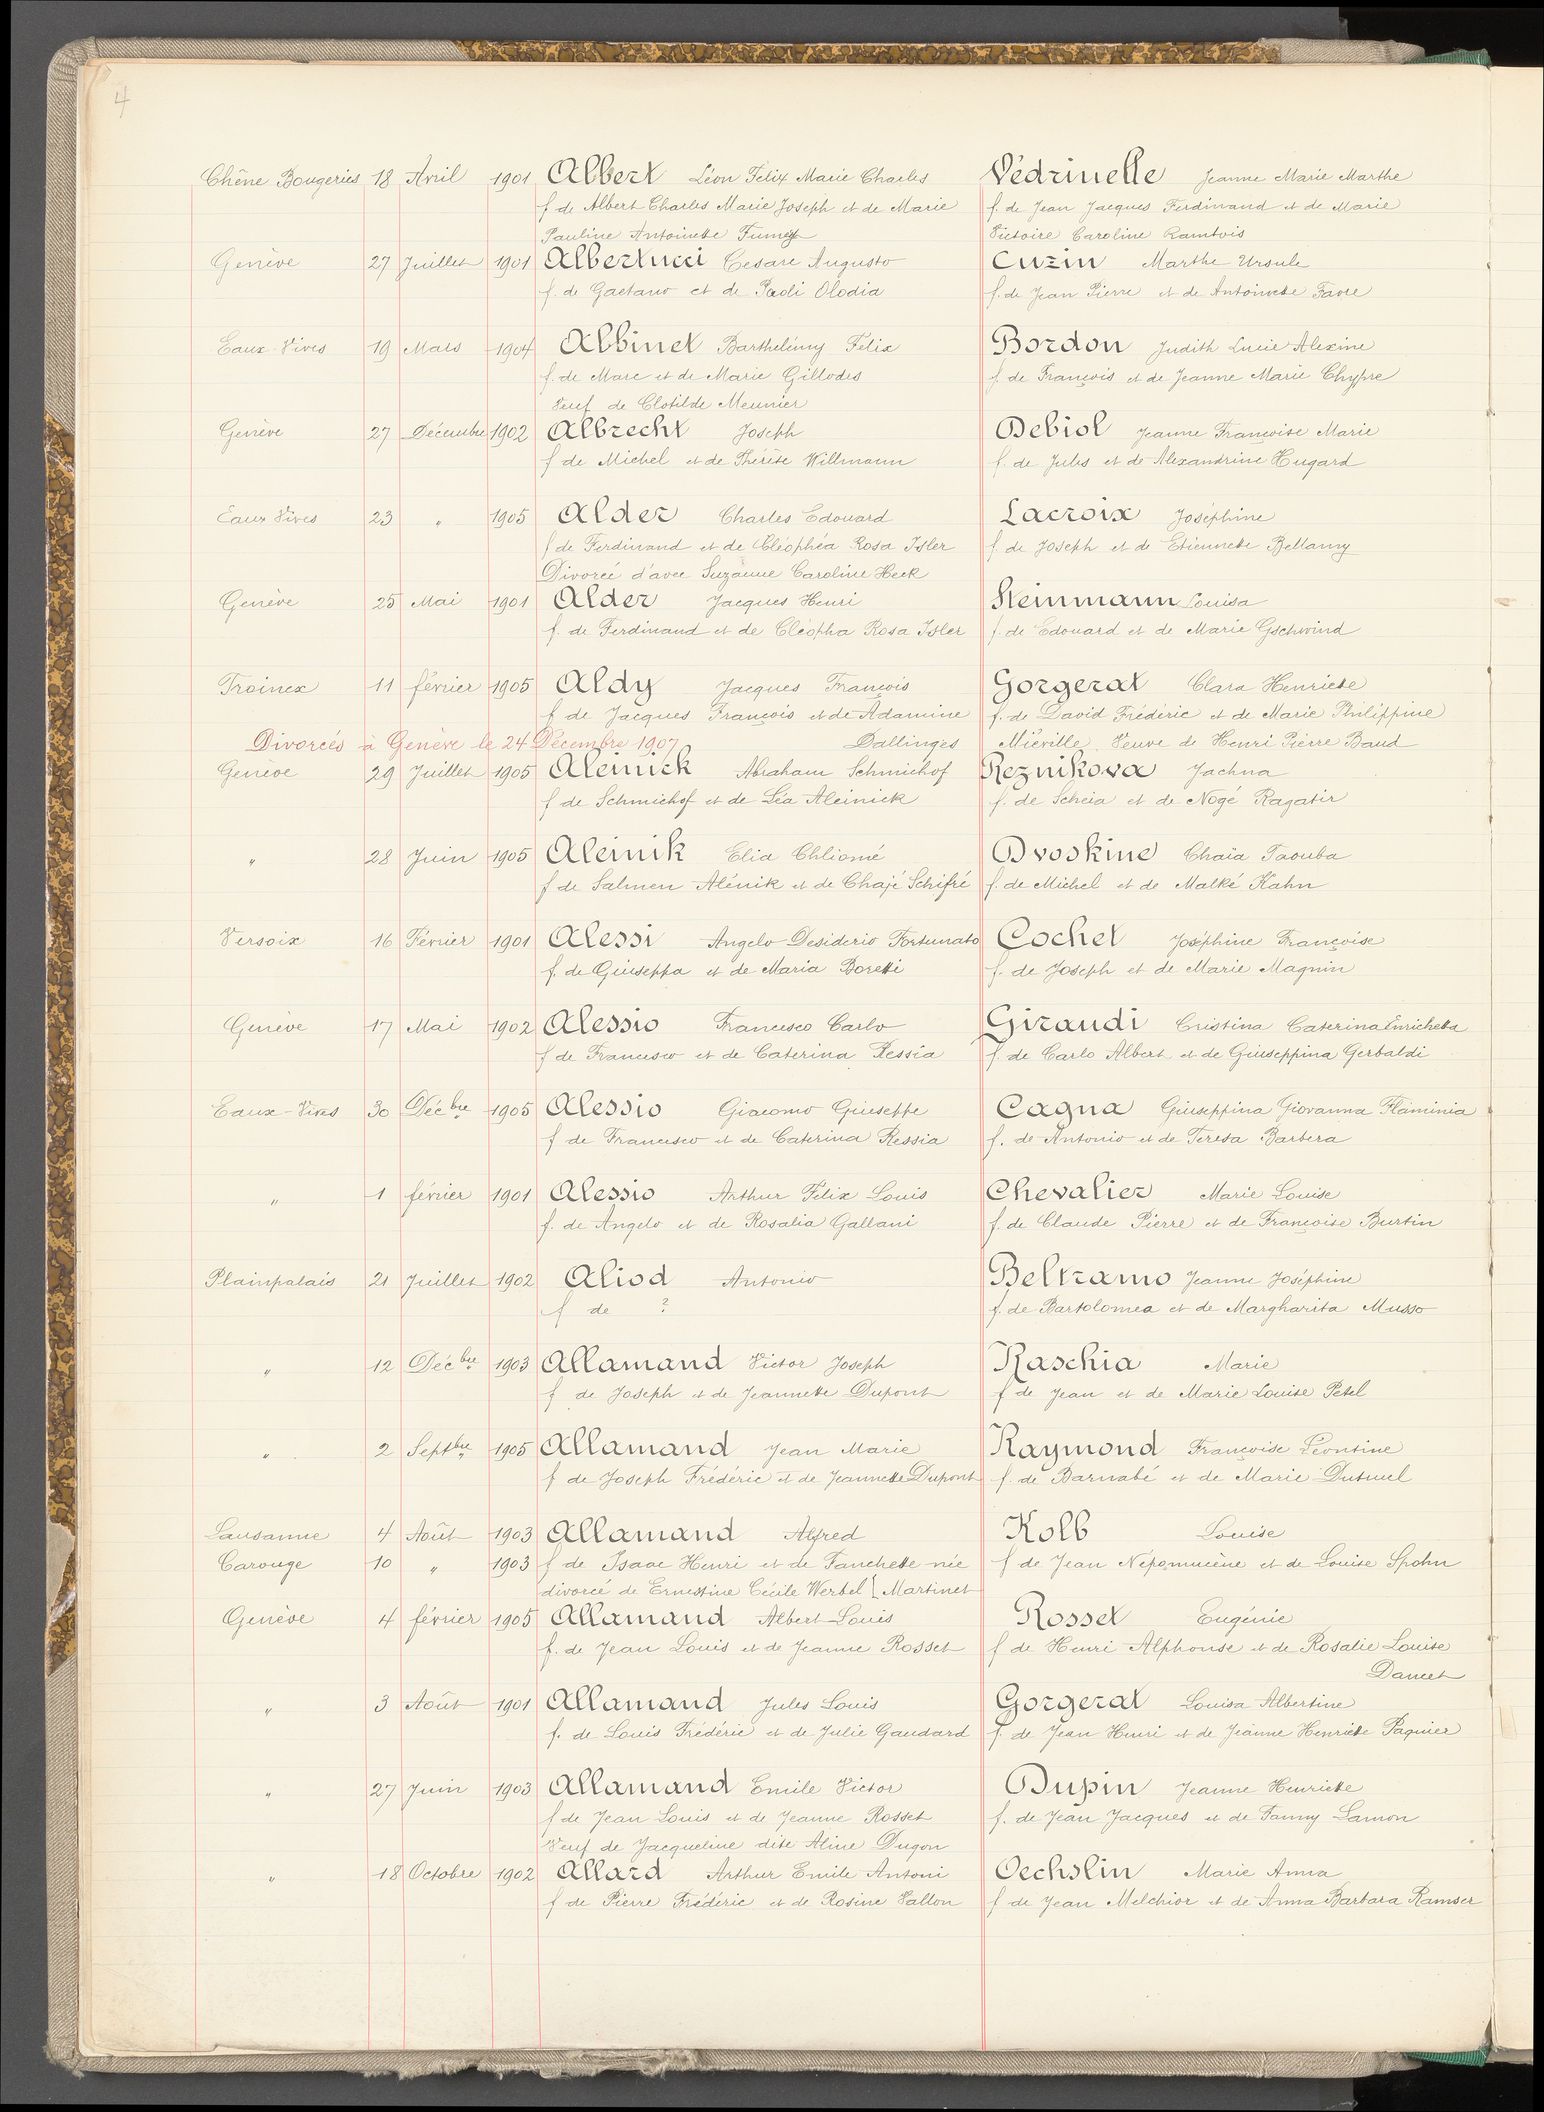 4
Chêne Bougeries 18 Avril 1901 Albert Léon Félix Marie Charles Védrinelle Jeanne Marie Marthe
f. de Albert Charles Marie Joseph et de Marie f. de Jean Jacques Ferdinand et de Marie
Pauline Antoinette Fumey Victoire Caroline Rambois
Genève 27 Juillet 1901 Albertucci Cesare Augusto Cuzin Marthe Ursule
f. de Gaetano et de Paoli Olodia f. de Jean Pierre et de Antoinette Favre
Eaux-Vives 19 Mars 1904 Albinet Barthélémy Félix Bordon Judith Lucie Alexine
f. de Marc et de Marie Gillodes f. de François et de Jeanne Marie Chypre
Veuf de Clotilde Meunier
Genève 27 Décembre 1902 Albrecht Joseph Debiol Jeanne Françoise Marie
f de Michel et de Thérèse Willmann f. de Jules et de Alexandrine Hugard
Eaux Vives 23 " 1905 Alder Charles Edouard Lacroix Joséphine
f de Ferdinand et de Cléophéa Rosa Isler f. de Joseph et de Etiennette Bellamy
Divorcé d'avec Suzanne Caroline Heck
Genève 25 Mai 1901 Alder Jacques Henri Steinmann Louisa
f. de Ferdinand et de Cléopha Rosa Isler f. de Edouard et de Marie Gschwind
Troinex 11 février 1905 Aldy Jacques François Gorgerat Clara Henriette
f de Jacques François et de Adamine f. de David Frédéric et de Marie Philippine
Divorcés à Genève le 24 Décembre 1907 Dallinges Miéville. Veuve de Henri Pierre Baud
Genève 29 Juillet 1905 Aleinick Abraham Schmichof Reznikova Jachna
f de Schmichof et de Léa Aleinick f. de Scheia et de Nogé Ragatir
" 28 Juin 1905 Aleinik Elia Chliomé Dvoskine Chaïa Taouba
f de Salmen Alénik et de Chajé Schifré f. de Michel et de Malké Kahn
Versoix 16 Février 1901 Alessi Angelo Desiderio Fortunato Cochet Joséphine Françoise
f. de Giuseppa et de Maria Boretti f. de Joseph et de Marie Magnin
Genève 17 Mai 1902 Alessio Francesco Carlo Giraudi Cristina Caterina Enrichetta
f de Francesco et de Caterina Ressia f. de Carlo Albert et de Giuseppina Gerbaldi
Eaux-Vives 30 Décbre 1905 Alessio Giacomo Giuseppe Cagna Giuseppina Giovanna Flaminia
f de Francesco et de Caterina Ressia f. de Antonio et de Teresa Barbera
" 1 février 1901 Alessio Arthur Félix Louis Chevalier Marie Louise
f. de Angelo et de Rosalia Gallani f. de Claude Pierre et de Françoise Burtin
Plainpalais 21 Juillet 1902 Aliod Antonio Beltramo Jeanne Joséphine
f de ? f. de Bartolomea et de Margharita Musso
" 12 Décbre 1903 Allamand Victor Joseph Raschia Marie
f de Joseph et de Jeannette Dupont f de Jean et de Marie Louise Petel
" 2 Septbre 1905 Allamand Jean Marie Raymond Françoise Léontine
f de Joseph Frédéric et de Jeannette Dupont f. de Barnabé et de Marie Dutruel
Lausanne 4 Août 1903 Allamand Alfred Kolb Louise
Carouge 10 " 1903 f de Isaac Henri et de Fanchette née f de Jean Népomucène et de Louise Spohn
divorcé de Ernestine Cécile Werbel [ Martinet
Genève 4 février 1905 Allamand Albert Louis Rosset Eugénie
f. de Jean Louis et de Jeanne Rosset f de Henri Alphonse et de Rosalie Louise
Dancet
" 3 Août 1901 Allamand Jules Louis Gorgerat Louisa Albertine
f. de Louis Frédéric et de Julie Gaudard f. de Jean Henri et de Jeanne Henriette Paquier
" 27 Juin 1903 Allamand Emile Victor Dupin Jeanne Henriette
f de Jean Louis et de Jeanne Rosset f. de Jean Jacques et de Fanny Lamon
Veuf de Jacqueline dite Aline Dugon
" 18 Octobre 1902 Allard Arthur Emile Antoni Oechslin Marie Anna
f de Pierre Frédéric et de Rosine Vallon f de Jean Melchior et de Anna Barbara Ramser